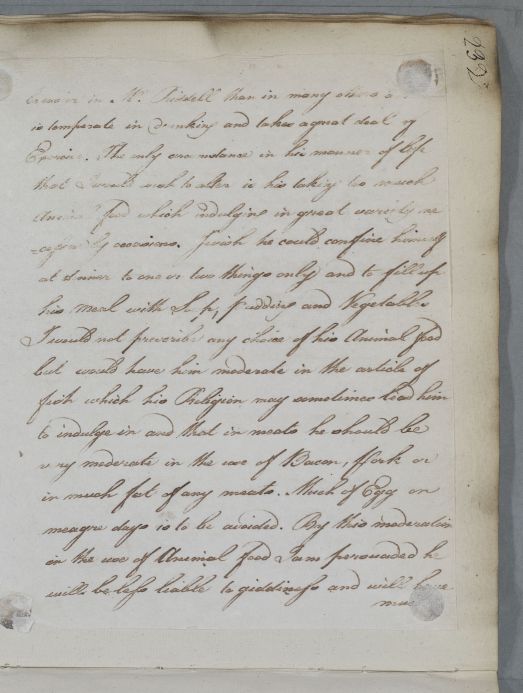 232
in Mr. Riddell than in many others
is temperate in drinking and takes a great deal of
Exercise. The only circumstance in his manner of life
that I would wish to alter is his taking too much
Animal food which indulging in great variety ne
-cessarily occasions. I wish he could confine himself
at dinner to one or two things only and to fill up
his meal with Soup, Pudding and Vegetables
I would not prescribe any choice of his Animal food
but would have him moderate in the article of
fish which his Religion may sometimes lead him
to indulge in and that in meats he should be
very moderate in the use of Bacon, Pork or
in much fat of any meats. Much of Egg on
meagre days is to be avoided. By this moderation
in the use of Animal food I am persuaded he
will be less liable to giddiness and will have